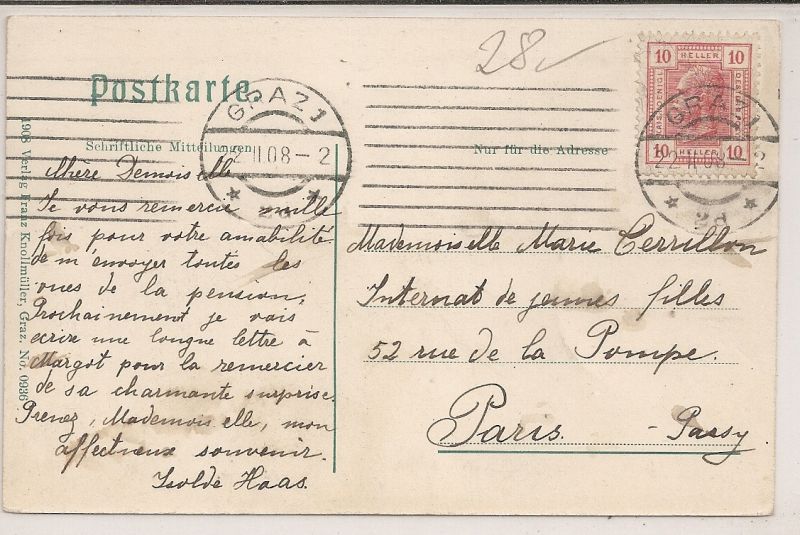 28
Postkarte
Schriftliche Mitteilungen
Nur für die Adresse
10 HELLER 10
10 HELLER 10
GRAZ 1
22 II 08 - 2
* 2d *
GRAZ 1
22 II 08 - 2
* 2d *
1908 Verlag Franz Knollmüller, Graz. No. 0936
Chère Demoiselle
Je vous remercie mille
fois pour votre amabilité
de m'envoyer toutes les
vues de la pension,
Prochainement je vais
ecrire une longue lettre à
Margot pour la remercier
de sa charmante surprise.
Prenez, Mademoiselle, mon
affectueux souvenir.
Isolde Haas.
Mademoiselle Marie Cerrillon
Internat de jeunes filles
52 rue de la Pompe.
Paris. - Passy